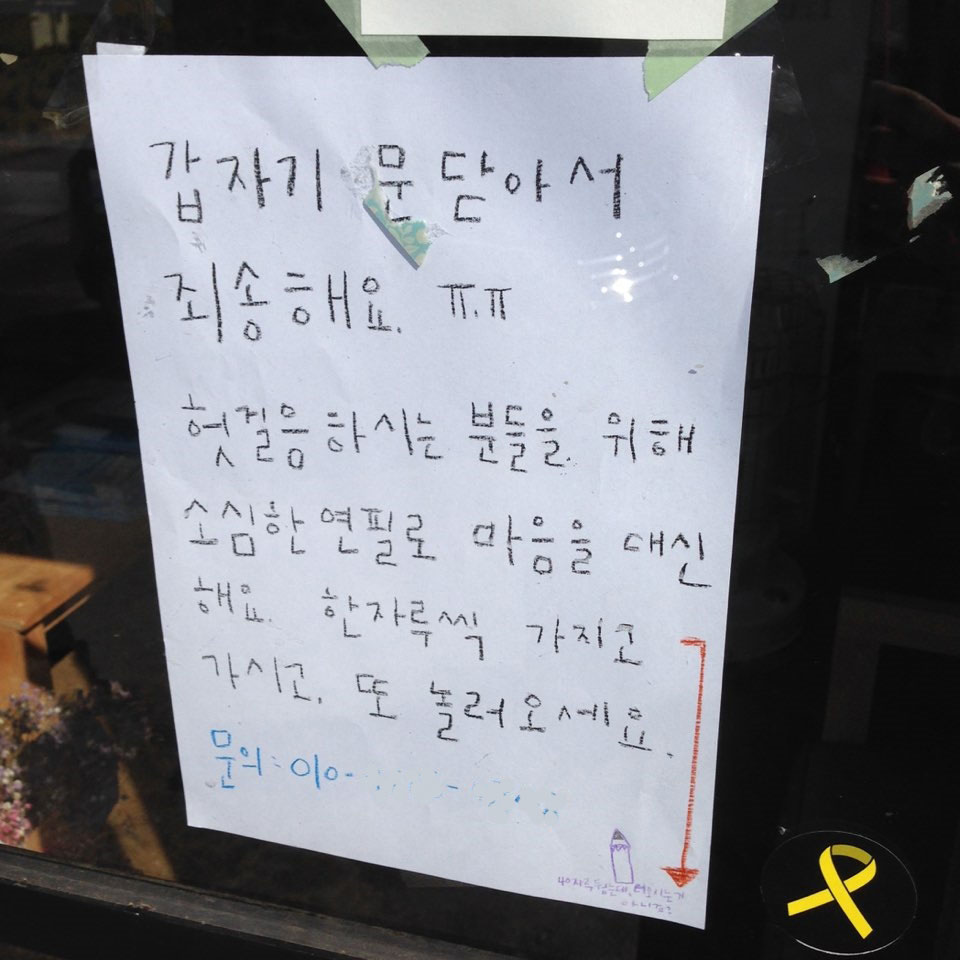 갑자기 문 닫아서
죄송해요. ㅠ.ㅠ
헛걸음하시는 분들을 위해
소심한 연필로 마음을 대신
해요. 한자루씩 가지고
가시고, 또 놀러오세요.
문의: 010-
아니죠?